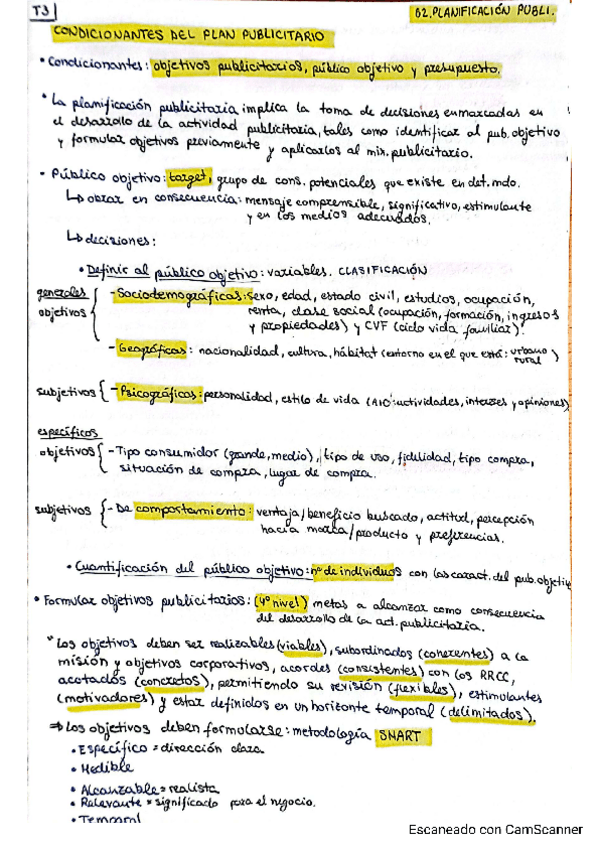 T3
02. PLANIFICACIÓN PUBLI.
CONDICIONANTES DEL PLAN PUBLICITARIO
• Condicionantes: objetivos publicitarios, público objetivo y presupuesto.
• La planificación publicitaria implica la toma de decisiones enmarcadas en
el desarrollo de la actividad publicitaria, tales como identificar al pub. objetivo
y formular objetivos previamente y aplicarlos al mix. publicitario.
• Público objetivo: target, grupo de cons. potenciales que existe en det. mdo.
↳ obrar en consecuencia: mensaje comprensible, significativo, estimulante
y en los medios adecuados.
↳ decisiones:
• Definir al público objetivo: variables. CLASIFICACIÓN
generales
objetivos { - Sociodemográficas: sexo, edad, estado civil, estudios, ocupación,
renta, clase social (ocupación, formación, ingresos
y propiedades) y CVF (ciclo vida familiar).
- Geográficas: nacionalidad, cultura, hábitat (entorno en el que está: urbano
rural)
subjetivos { - Psicográficas: personalidad, estilo de vida (AIO: actividades, intereses y opiniones)
específicos
objetivos { - Tipo consumidor (grande, medio), tipo de uso, fidelidad, tipo compra,
situación de compra, lugar de compra.
subjetivos { - De comportamiento: ventaja/beneficio buscado, actitud, percepción
hacia marca/producto y preferencias.
• Cuantificación del público objetivo: nº de individuos con las caract. del pub. objetiv
• Formular objetivos publicitarios: (4º nivel) metas a alcanzar como consecuencia
del desarrollo de la act. publicitaria.
* Los objetivos deben ser realizables (viables), subordinados (coherentes) a la
misión y objetivos corporativos, acordes (consistentes) con los RRCC,
acotados (concretos), permitiendo su revisión (flexibles), estimulantes
(motivadores) y estar definidos en un horizonte temporal (delimitados).
⇒ Los objetivos deben formularse: metodología SMART
• Específico = dirección clara.
• Medible
• Alcanzable = realista
• Relevante = significado para el negocio.
• Temporal
Escaneado con CamScanner